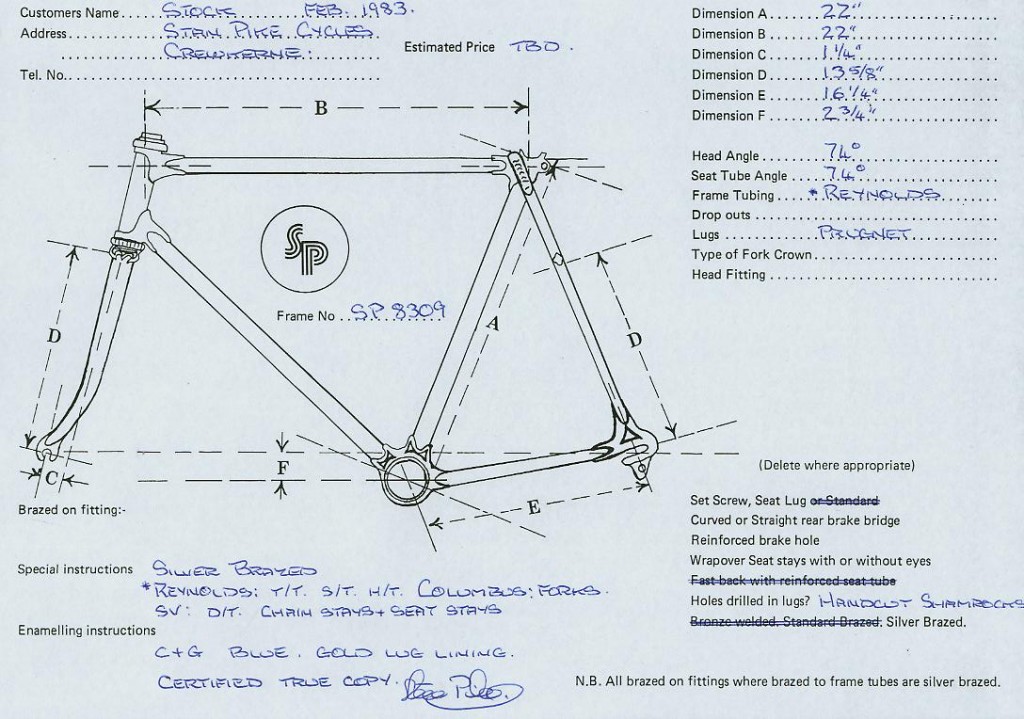 Customers Name STOCK FEB. 1983.
Address STAN PIKE CYCLES.
CREWKERNE.
Estimated Price TBD.
Tel. No.
Dimension A 22"
Dimension B 22"
Dimension C 1 1/4"
Dimension D 13 5/8"
Dimension E 16 1/4"
Dimension F 2 3/4"
Head Angle 74°
Seat Tube Angle 74°
Frame Tubing * REYNOLDS
Drop outs
Lugs PRUGNET
Type of Fork Crown
Head Fitting
B
SP
Frame No SP 8309
A
D
D
C
F
E
Brazed on fitting:-
(Delete where appropriate)
Set Screw, Seat Lug or Standard
Curved or Straight rear brake bridge
Reinforced brake hole
Wrapover Seat stays with or without eyes
Fast back with reinforced seat tube
Holes drilled in lugs? HANDCUT SHAMROCKS
Bronze welded. Standard Brazed. Silver Brazed.
Special instructions SILVER BRAZED
*REYNOLDS: T/T. S/T. H/T. COLUMBUS: FORKS.
SV: D/T. CHAIN STAYS + SEAT STAYS
Enamelling instructions
C+G BLUE. GOLD LUG LINING.
CERTIFIED TRUE COPY. Stan Pike
N.B. All brazed on fittings where brazed to frame tubes are silver brazed.